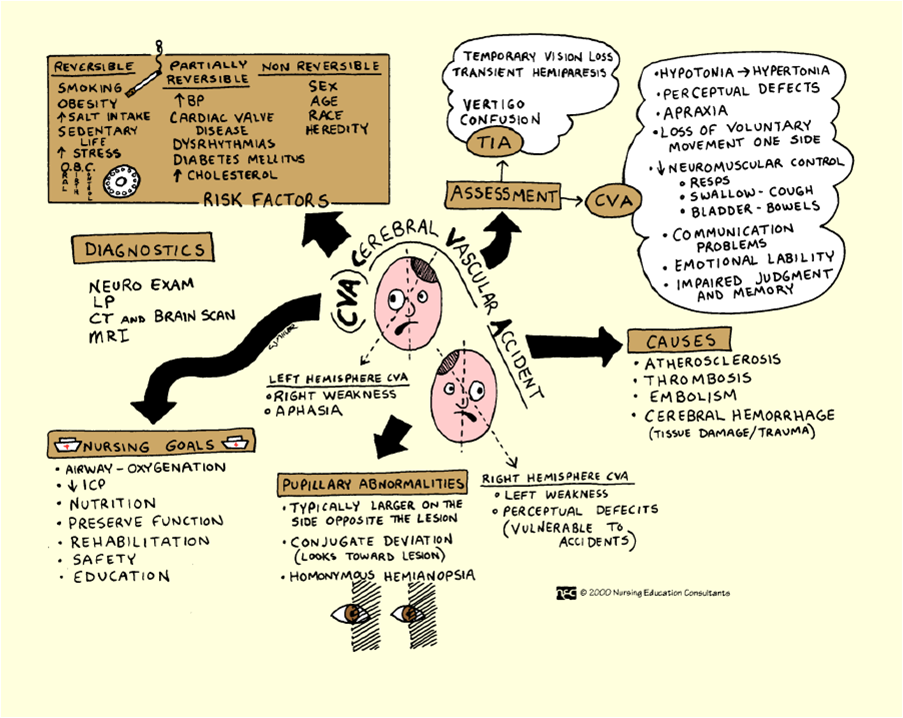 REVERSIBLE
SMOKING
OBESITY
↑SALT INTAKE
SEDENTARY
LIFE
↑ STRESS
O.B.C.
ORAL
BIRTH
CONTROL
PARTIALLY
REVERSIBLE
↑BP
CARDIAC VALVE
DISEASE
DYSRHYTHMIAS
DIABETES MELLITUS
↑ CHOLESTEROL
NON REVERSIBLE
SEX
AGE
RACE
HEREDITY
RISK FACTORS
TEMPORARY VISION LOSS
TRANSIENT HEMIPARESIS
VERTIGO
CONFUSION
TIA
ASSESSMENT
CVA
• HYPOTONIA → HYPERTONIA
• PERCEPTUAL DEFECTS
• APRAXIA
• LOSS OF VOLUNTARY
MOVEMENT ONE SIDE
• ↓NEUROMUSCULAR CONTROL
• RESPS
• SWALLOW-COUGH
• BLADDER-BOWELS
• COMMUNICATION
PROBLEMS
• EMOTIONAL LABILITY
• IMPAIRED JUDGMENT
AND MEMORY
DIAGNOSTICS
NEURO EXAM
LP
CT AND BRAIN SCAN
MRI
(CVA) CEREBRAL VASCULAR ACCIDENT
LEFT HEMISPHERE CVA
• RIGHT WEAKNESS
• APHASIA
CAUSES
• ATHEROSCLEROSIS
• THROMBOSIS
• EMBOLISM
• CEREBRAL HEMORRHAGE
(TISSUE DAMAGE/TRAUMA)
NURSING GOALS
• AIRWAY-OXYGENATION
• ↓ICP
• NUTRITION
• PRESERVE FUNCTION
• REHABILITATION
• SAFETY
• EDUCATION
PUPILLARY ABNORMALITIES
• TYPICALLY LARGER ON THE
SIDE OPPOSITE THE LESION
• CONJUGATE DEVIATION
(LOOKS TOWARD LESION)
• HOMONYMOUS HEMIANOPSIA
RIGHT HEMISPHERE CVA
• LEFT WEAKNESS
• PERCEPTUAL DEFECITS
(VULNERABLE TO
ACCIDENTS)
nec © 2000 Nursing Education Consultants